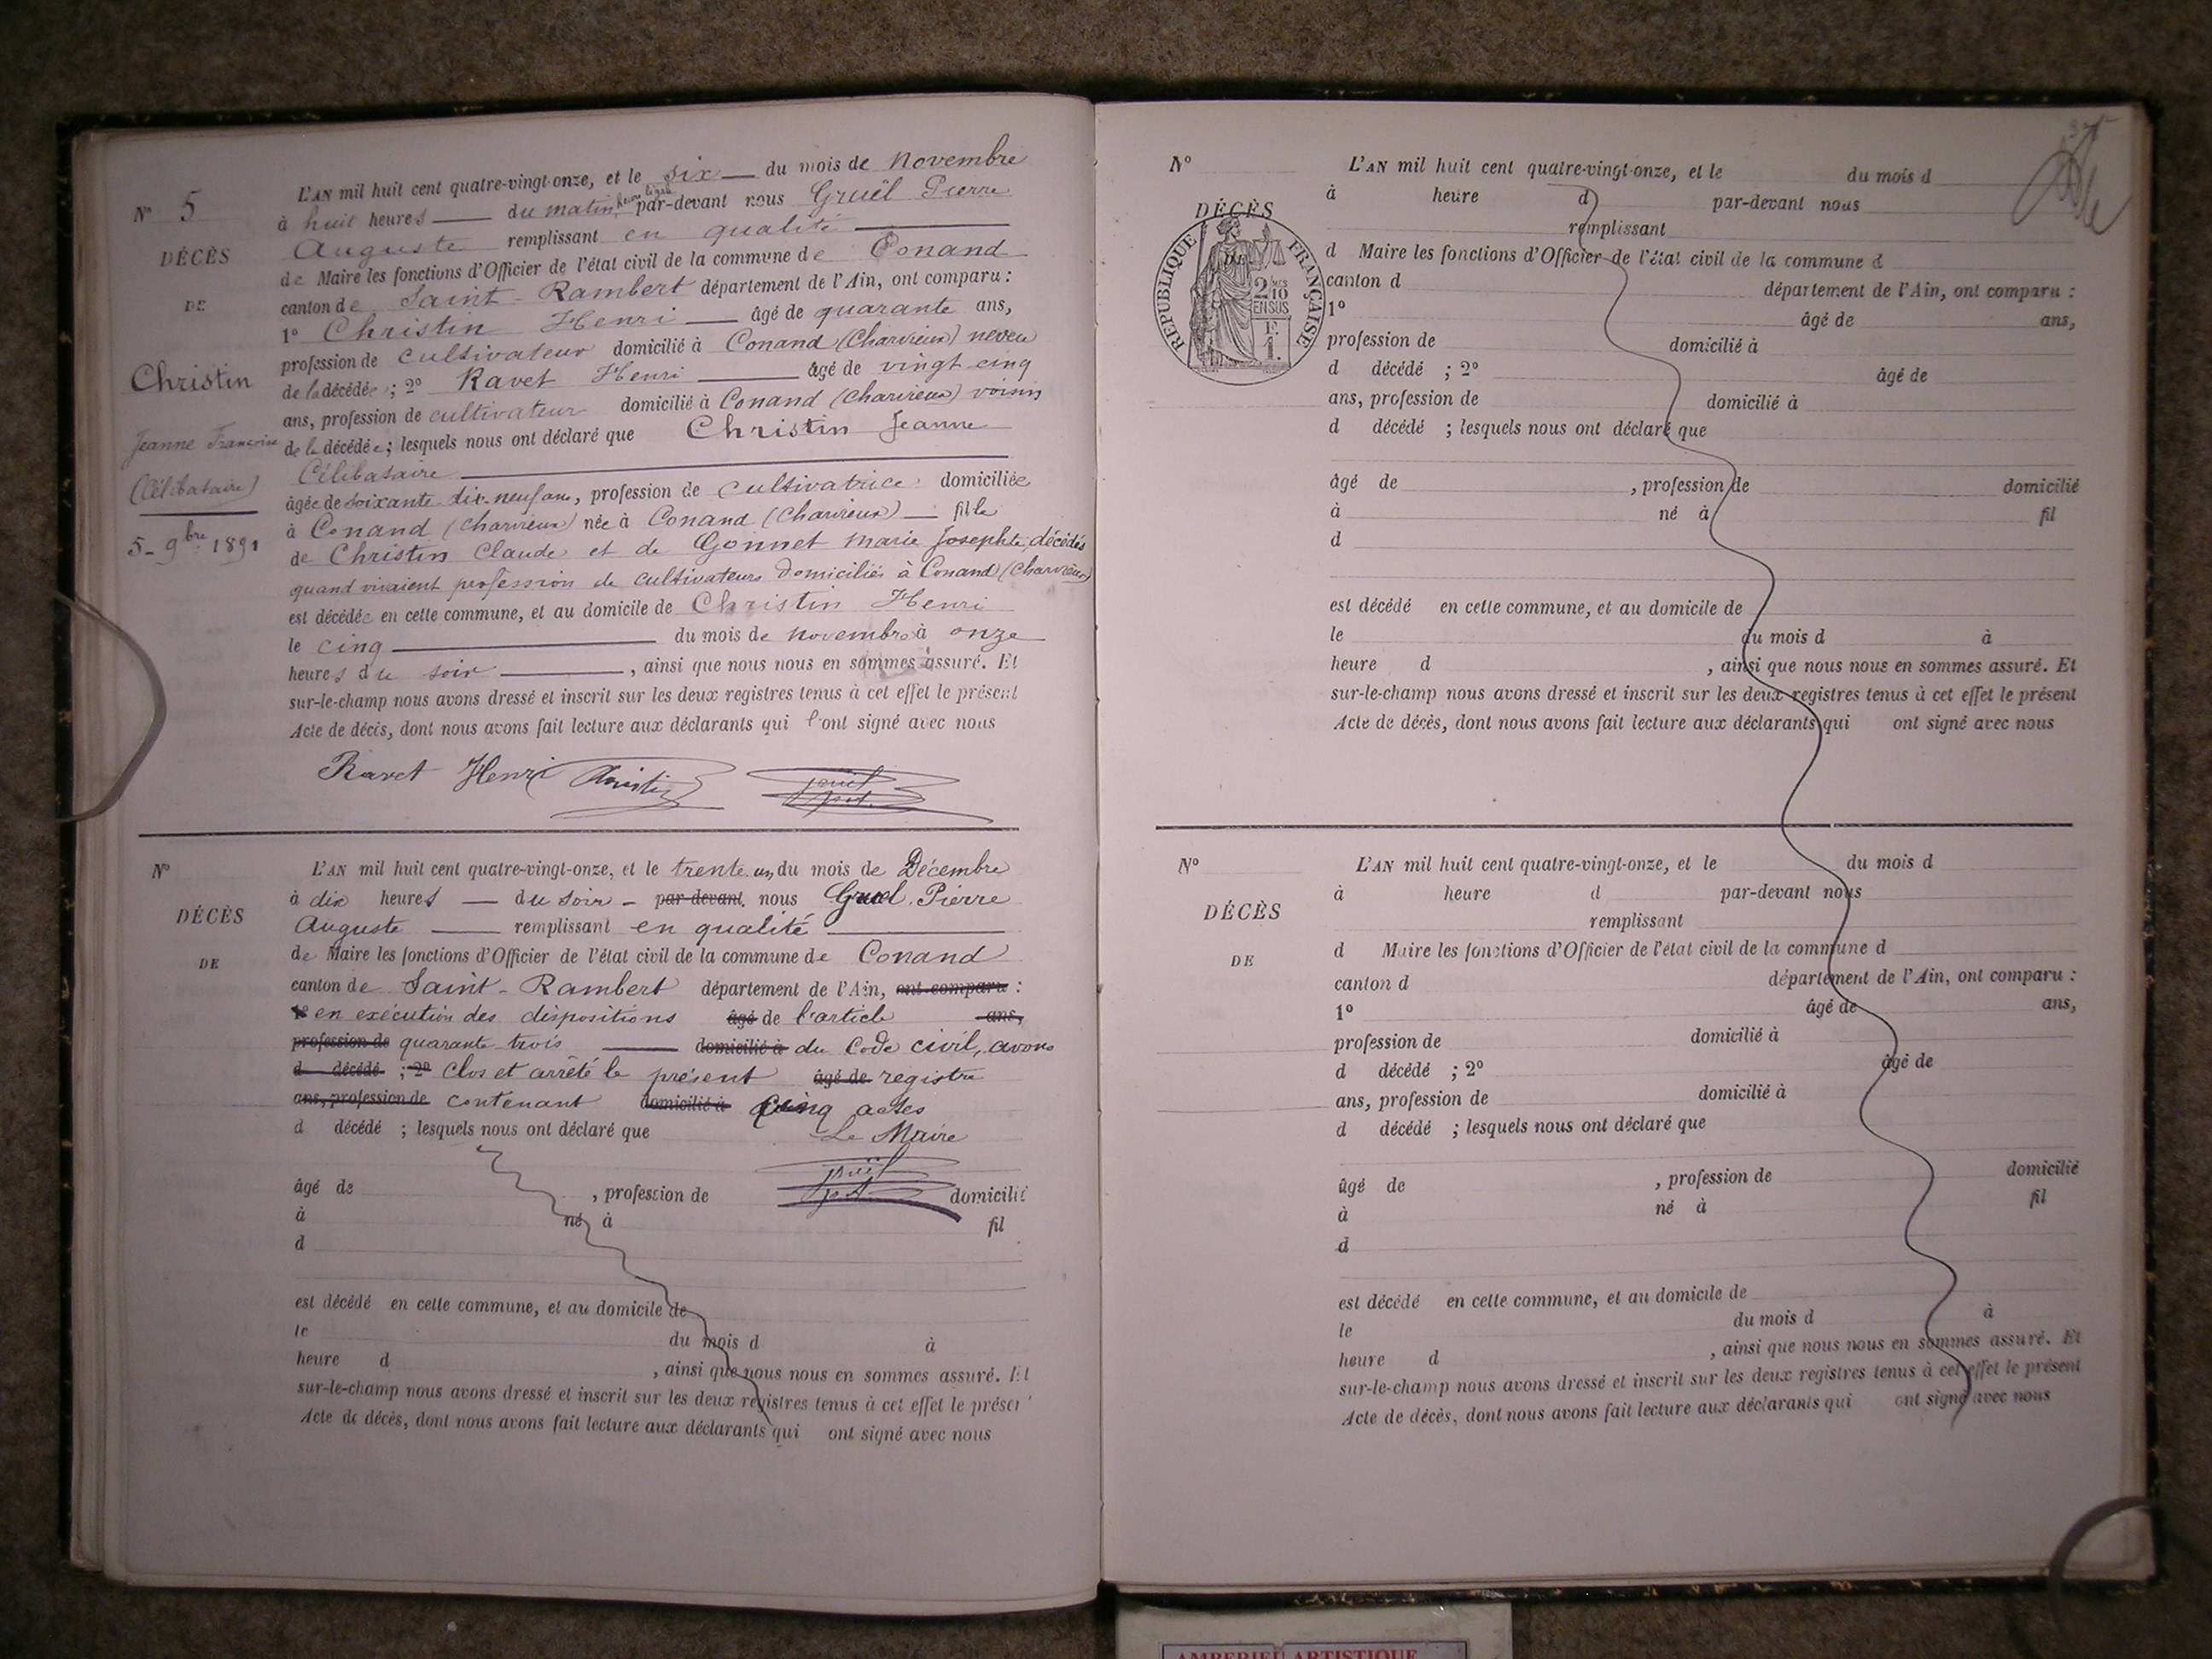 N° 5
DÉCÈS
DE
Christin
Jeanne Françoise
(Célibataire)
5_ 9bre 1891
L'AN mil huit cent quatre-vingt-onze, et le six — du mois de Novembre
à huit heures — du matin par-devant nous Gruël Pierre
Auguste remplissant en qualité —
de Maire les fonctions d'Officier de l'état civil de la commune de Conand
canton de Saint-Rambert département de l'Ain, ont comparu :
1° Christin Henri — âgé de quarante ans,
profession de cultivateur domicilié à Conand (Charvieux) neveu
de la décédée ; 2° Ravet Henri — âgé de vingt cinq
ans, profession de cultivateur domicilié à Conand (Charvieux) voisin
de la décédée ; lesquels nous ont déclaré que Christin Jeanne
Célibataire —
âgée de soixante dix-neuf ans, profession de cultivatrice domiciliée
à Conand (Charvieux) née à Conand (Charvieux) — fille
de Christin Claude et de Gonnet Marie Josephte, décédés
quand vivaient profession de cultivateurs domiciliés à Conand (Charvieux)
est décédée en cette commune, et au domicile de Christin Henri
le cinq — du mois de novembre à onze
heures du soir —, ainsi que nous nous en sommes assuré. Et
sur-le-champ nous avons dressé et inscrit sur les deux registres tenus à cet effet le présent
Acte de décès, dont nous avons fait lecture aux déclarants qui l'ont signé avec nous
Ravet Henri Christin Gruël
N°
DÉCÈS
DE
L'AN mil huit cent quatre-vingt-onze, et le trente un du mois de Décembre
à dix heures — du soir — par-devant nous Gruel Pierre
Auguste — remplissant en qualité —
de Maire les fonctions d'Officier de l'état civil de la commune de Conand
canton de Saint-Rambert département de l'Ain, ont comparu :
1° en exécution des dispositions âgé de l'article ans,
profession de quarante trois — domicilié à du Code civil, avons
d décédé ; 2° Clos et arrêté le présent âgé de registre
ans, profession de contenant domicilié à Cinq actes
d décédé ; lesquels nous ont déclaré que Le Maire
Gruël
âgé de , profession de domicilié
à né à fil
d
est décédé en cette commune, et au domicile de
le du mois d à
heure d , ainsi que nous nous en sommes assuré. Et
sur-le-champ nous avons dressé et inscrit sur les deux registres tenus à cet effet le présent
Acte de décès, dont nous avons fait lecture aux déclarants qui ont signé avec nous
N°
DÉCÈS
DE
RÉPUBLIQUE FRANÇAISE
2 10
EN SUS
F.
1.
L'AN mil huit cent quatre-vingt-onze, et le du mois d
à heure d par-devant nous
remplissant
d Maire les fonctions d'Officier de l'état civil de la commune d
canton d département de l'Ain, ont comparu :
1° âgé de ans,
profession de domicilié à
d décédé ; 2° âgé de
ans, profession de domicilié à
d décédé ; lesquels nous ont déclaré que
âgé de , profession de domicilié
à né à fil
d
est décédé en cette commune, et au domicile de
le du mois d à
heure d , ainsi que nous nous en sommes assuré. Et
sur-le-champ nous avons dressé et inscrit sur les deux registres tenus à cet effet le présent
Acte de décès, dont nous avons fait lecture aux déclarants qui ont signé avec nous
N°
DÉCÈS
DE
L'AN mil huit cent quatre-vingt-onze, et le du mois d
à heure d par-devant nous
remplissant
d Maire les fonctions d'Officier de l'état civil de la commune d
canton d département de l'Ain, ont comparu :
1° âgé de ans,
profession de domicilié à
d décédé ; 2° âgé de
ans, profession de domicilié à
d décédé ; lesquels nous ont déclaré que
âgé de , profession de domicilié
à né à fil
d
est décédé en cette commune, et au domicile de
le du mois d à
heure d , ainsi que nous nous en sommes assuré. Et
sur-le-champ nous avons dressé et inscrit sur les deux registres tenus à cet effet le présent
Acte de décès, dont nous avons fait lecture aux déclarants qui ont signé avec nous
AMBERIEU ARTISTIQUE